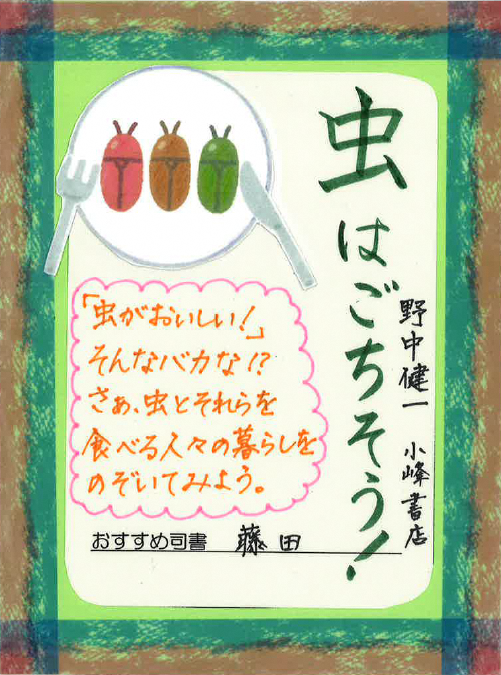 虫はごちそう!
野中健一 小峰書店
「虫がおいしい!」
そんなバカな!?
さぁ、虫とそれらを
食べる人々の暮らしを
のぞいてみよう。
おすすめ司書 藤田